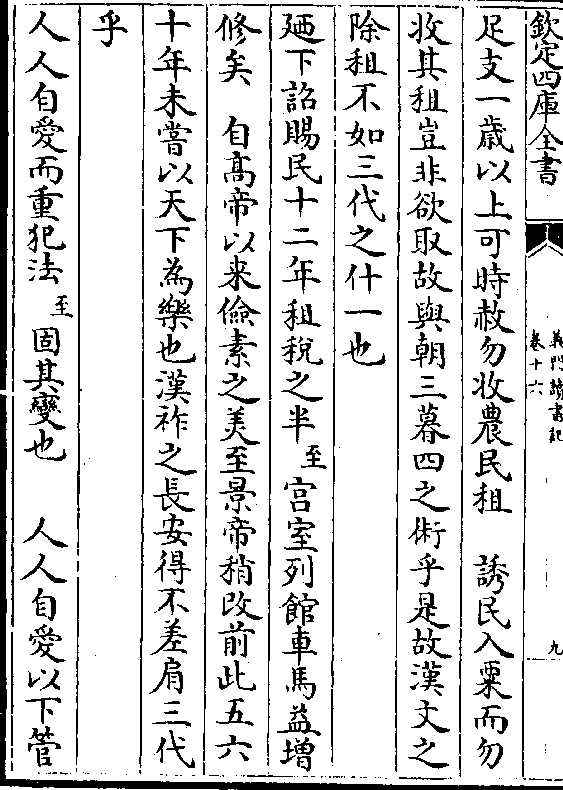 欽定四庫全書
義門讀書記
卷十六
九
足支一歲以上可時赦勿收農民租　誘民入粟而勿
收其租豈非欲取故與朝三暮四之術乎是故漢文之
除租不如三代之什一也
廼下詔賜民十二年租稅之半至宫室列館車馬益增
修矣　自髙帝以来儉素之美至景帝稍改前此五六
十年未嘗以天下為樂也漢祚之長安得不差肩三代
乎
人人自愛而重犯法至固其變也　人人自愛以下管